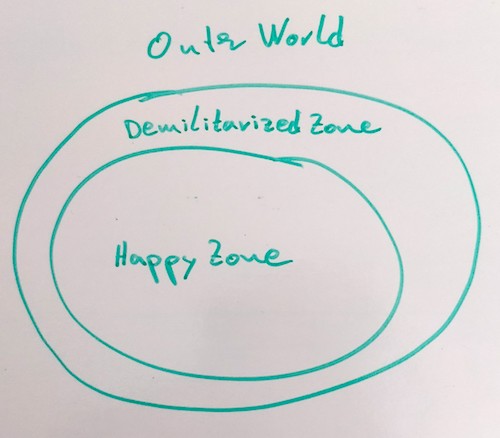 Outer World
Demilitarized Zone
Happy Zone